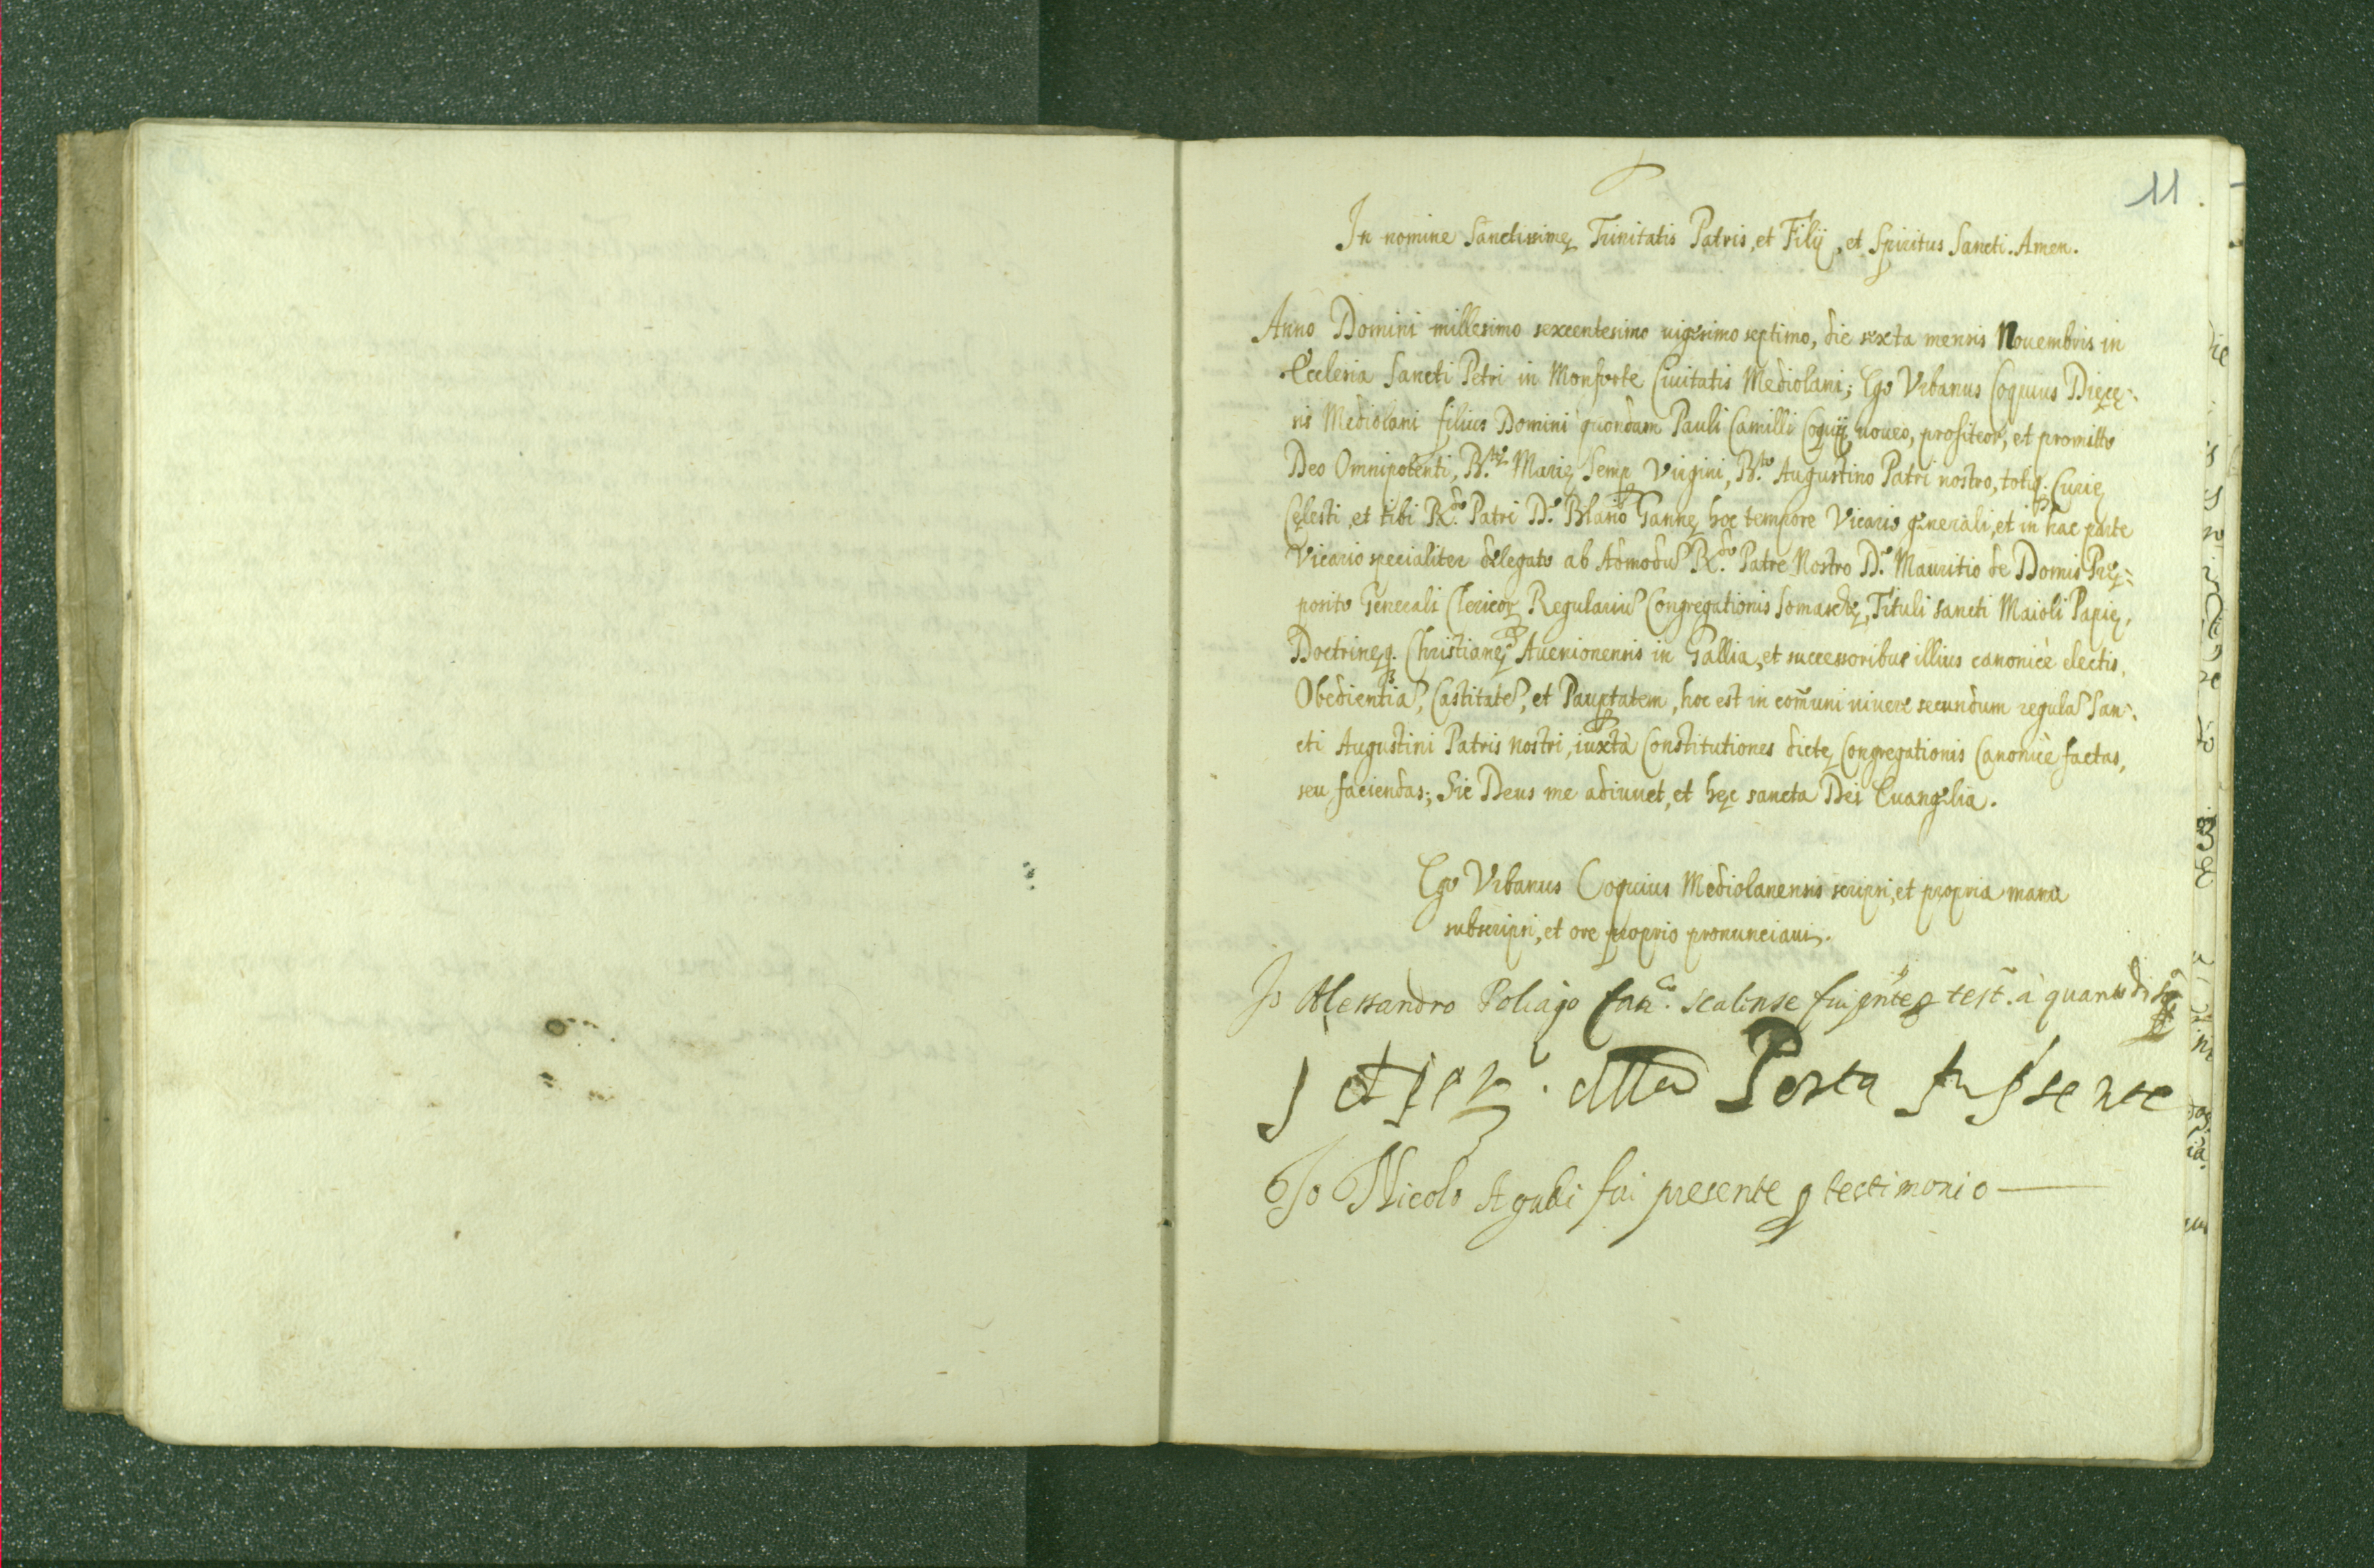 11
In nomine Sanctissimę Trinitatis Patris, et Filij, et Spiritus Sancti. Amen.
Anno Domini millesimo sexcentesimo uigesimo septimo, die sexta mensis Nouembris in
Ecclesia Sancti Petri in Monforte Ciuitatis Mediolani; Ego Vrbanus Coquius Dięcę-
sis Mediolani filius Domini quondam Pauli Camilli Coquij, uoueo, profiteor, et promitto
Deo Omnipotenti, B.tę Marię Semp Virgini, B.to Augustino Patri nostro, totiq. Curię
Cęlesti, et tibi R.do Patri D. Blasio Gannę hoc tempore Vicario generali, et in hac parte
Vicario specialiter delegato ab Admodũ R.do Patre Nostro D. Mauritio de Domis Prę-
posito Generali Clericoꝝ Regulariũ Congregationis Somaschę, Tituli sancti Maioli Papię,
Doctrinęq. Christianę Auenionensis in Gallia, et successoribus illius canonicè electis,
Obedientiã, Castitatẽ, et Paupertatem, hoc est in com̃uni uiuere secundum regulã San-
cti Augustini Patris nostri, iuxtà Constitutiones dictę Congregationis Canonicè factas,
seu faciendas; Sic Deus me adiuuet, et hęc sancta Dei Euangelia.
Ego Vrbanus Coquius Mediolanensis scripsi, et propria manu
subscripsi, et ore proprio pronunciaui.
Io Alessandro Poliago Can.co Scalense fui pñte ꝑ test. à quanto di sopra
Porta fu p̃sente
Io Nicolo Agudi fui presente ꝑ testimonio